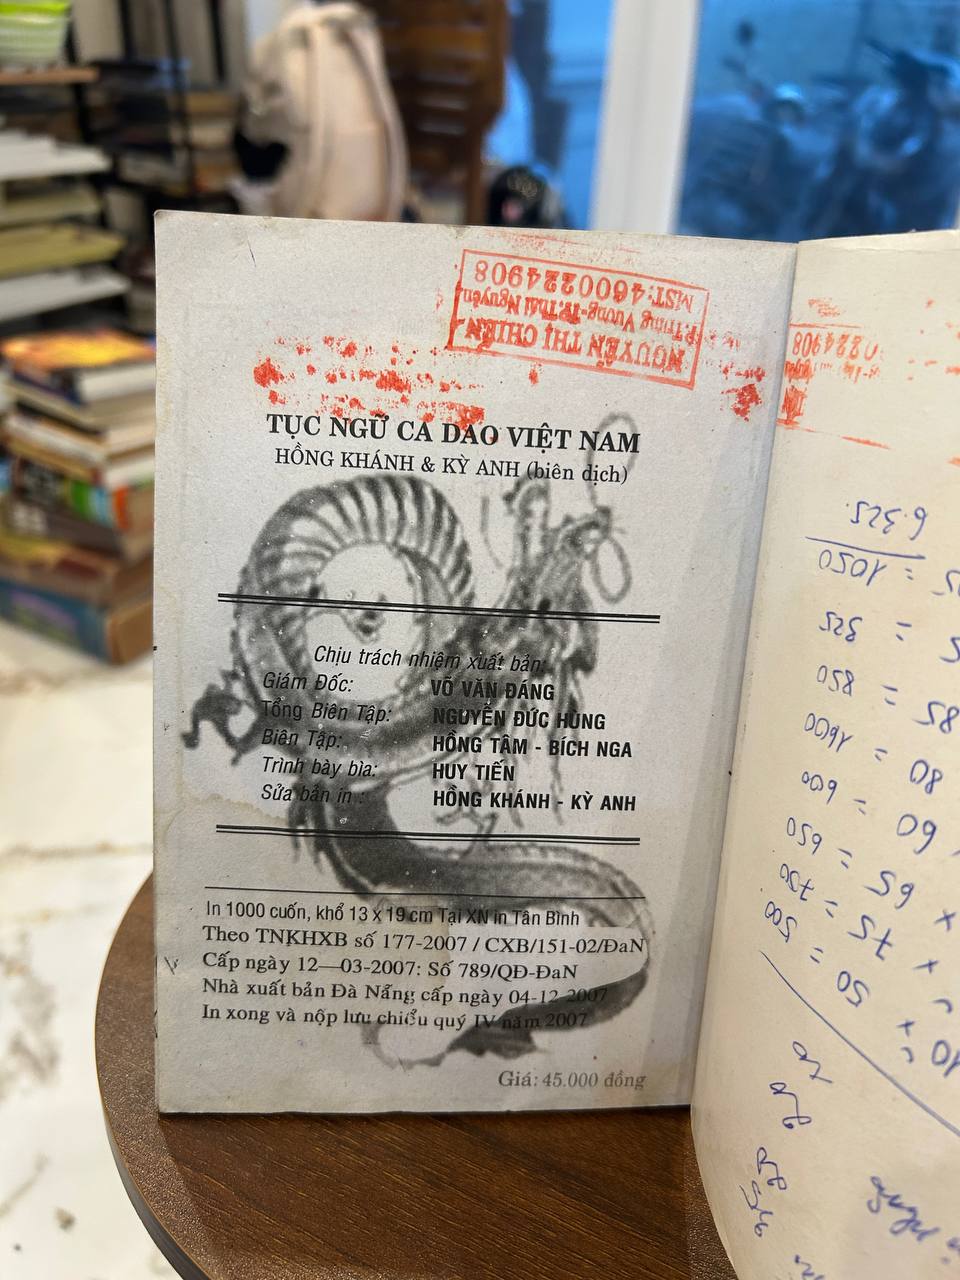 NGUYỄN THỊ CHIẾN
P.Trưng Vương-Tp.Thái Nguyên
MST:4600224908
224908
TỤC NGỮ CA DAO VIỆT NAM
HỒNG KHÁNH & KỲ ANH (biên dịch)
Chịu trách nhiệm xuất bản:
Giám Đốc: VÕ VĂN ĐÁNG
Tổng Biên Tập: NGUYỄN ĐỨC HÙNG
Biên Tập: HỒNG TÂM - BÍCH NGA
Trình bày bìa: HUY TIẾN
Sửa bản in : HỒNG KHÁNH - KỲ ANH
In 1000 cuốn, khổ 13 x 19 cm Tại XN in Tân Bình
Theo TNKHXB số 177-2007 / CXB/151-02/ĐaN
Cấp ngày 12—03-2007: Số 789/QĐ-ĐaN
Nhà xuất bản Đà Nẵng cấp ngày 04-12-2007
In xong và nộp lưu chiểu quý IV năm 2007
Giá: 45.000 đồng
50 = 500
x 75 = 750
x 65 = 650
60 = 600
80 = 1600
85 = 850
5 = 525
= 1050
6.325